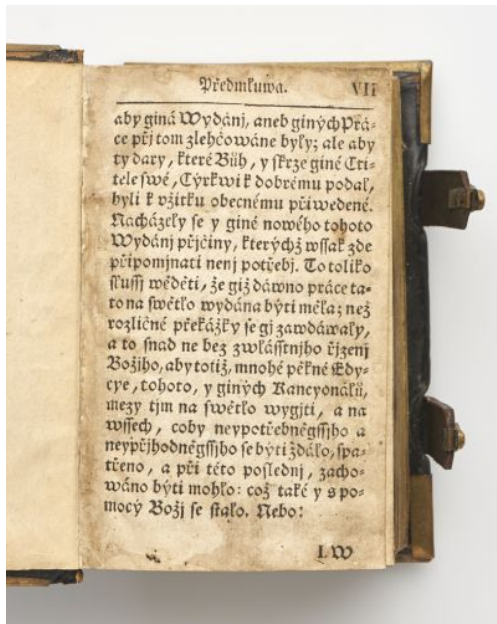 Předmluwa. VII
aby giná Wydánj, aneb giných Prá-
ce přj tom zlehčowáne byly; ale aby
ty dary, které Bůh, y skrze giné Cti-
tele swé, Cýrkwi k dobrému podal,
byli k vžitku obecnému přiwedené.
Nacházely se y giné nowého tohoto
Wydánj přjčiny, kterýchž wssak zde
připomjnati nenj potřebj. To toliko
slussj wěděti, že giž dáwno práce ta-
to na swětlo wydána býti měla; než
rozličné překážky se gj zawdáwaly,
a to snad ne bez zwlásstnjho řjzenj
Božjho, aby totiž, mnohé pěkné Edy-
cye, tohoto, y giných Kancyonálů,
mezy tjm na swětlo wygjti, a na
wssech, coby neypotřebněgssjho a
neypřjhodněgssjho se býti zdálo, spa-
třeno, a při této poslednj, zacho-
wáno býti mohlo: což také y s po-
mocý Božj se stalo. Nebo:
I. W